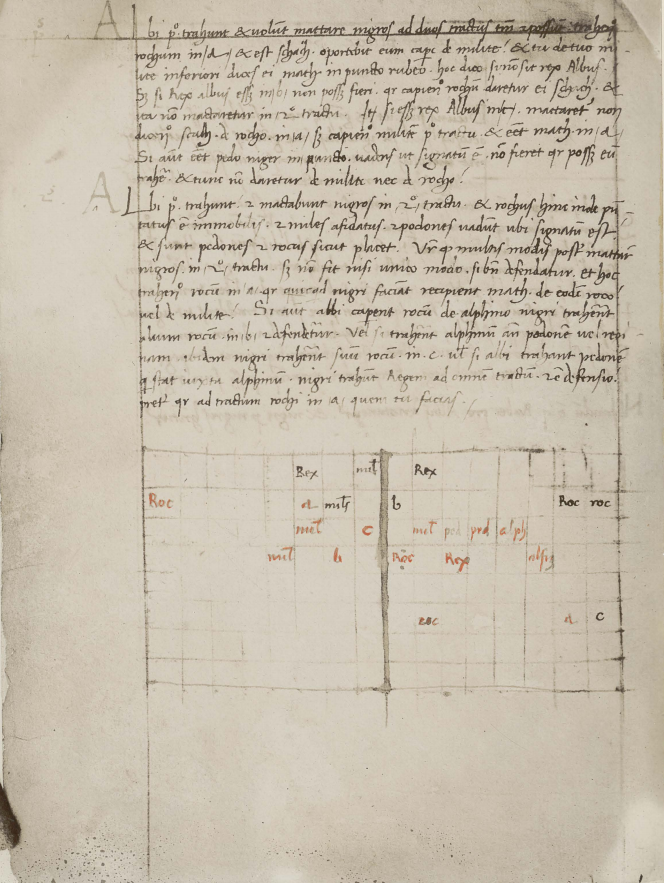 Albi pº. trahunt & volunt mattare nigros ad duos tractus tm̄ & possunt trahere
rochum in /A/ & est schach. oportebit eum cape de milite! & tu de tuo mi
lite inferiori dices ei math in puncto rubeo. hoc dico si nō sit rex Albus.
Sz si Rex albus essz in /b/ non possz fieri. qr capienº rochū daretur ei schach. &
ita nō mattaretur in 2º. tractu. Itē si essz rex Albus in /c/. mattaret non
dicenº scach. d rocho. in /a/ sz capienº militē pº tractu & eēt math. in /a/
Si aūt eēt pedo niger in puncto. uadens ut signatū ē. nō fieret qr possz eū
trahē. & tunc nō daretur de milite nec de rocho!
Albi pº. trahunt. & mactabunt nigros in /2º/ tractu. & rochus hinc inde pū
tatus ē immobilis. & miles afidatus. & pedones uadūt ubi signatū est
& sunt pedones & rocus sicut placet. Vr q multis modis possz mattar
nigros. in /2º/ tractu. sz non fit nisi unico modo. si bñ defendatur. et hoc
trahenº rocū in a. qr quicqd nigri faciāt recipient math. de eodē roco
uel de milite! Si aūt albi capent rocū de alphino nigri trahēnt
alium rocū. in. b. & defendētur. Vel si trahēnt alphinū in pedonē uel
nigri trahēnt suū rocū. in. c. ul si albi trahant pedonē
q stat iuxta alphinum. nigri trahūt Regem ad omnē tractū. & ē defensio.
pret qr ad tractum rochi in /a/ quem tu facias.
Rex mil Rex
Roc a mils b Roc roc
mil c mil ped ped alph
mil b Roc Rex alfiz
roc a c